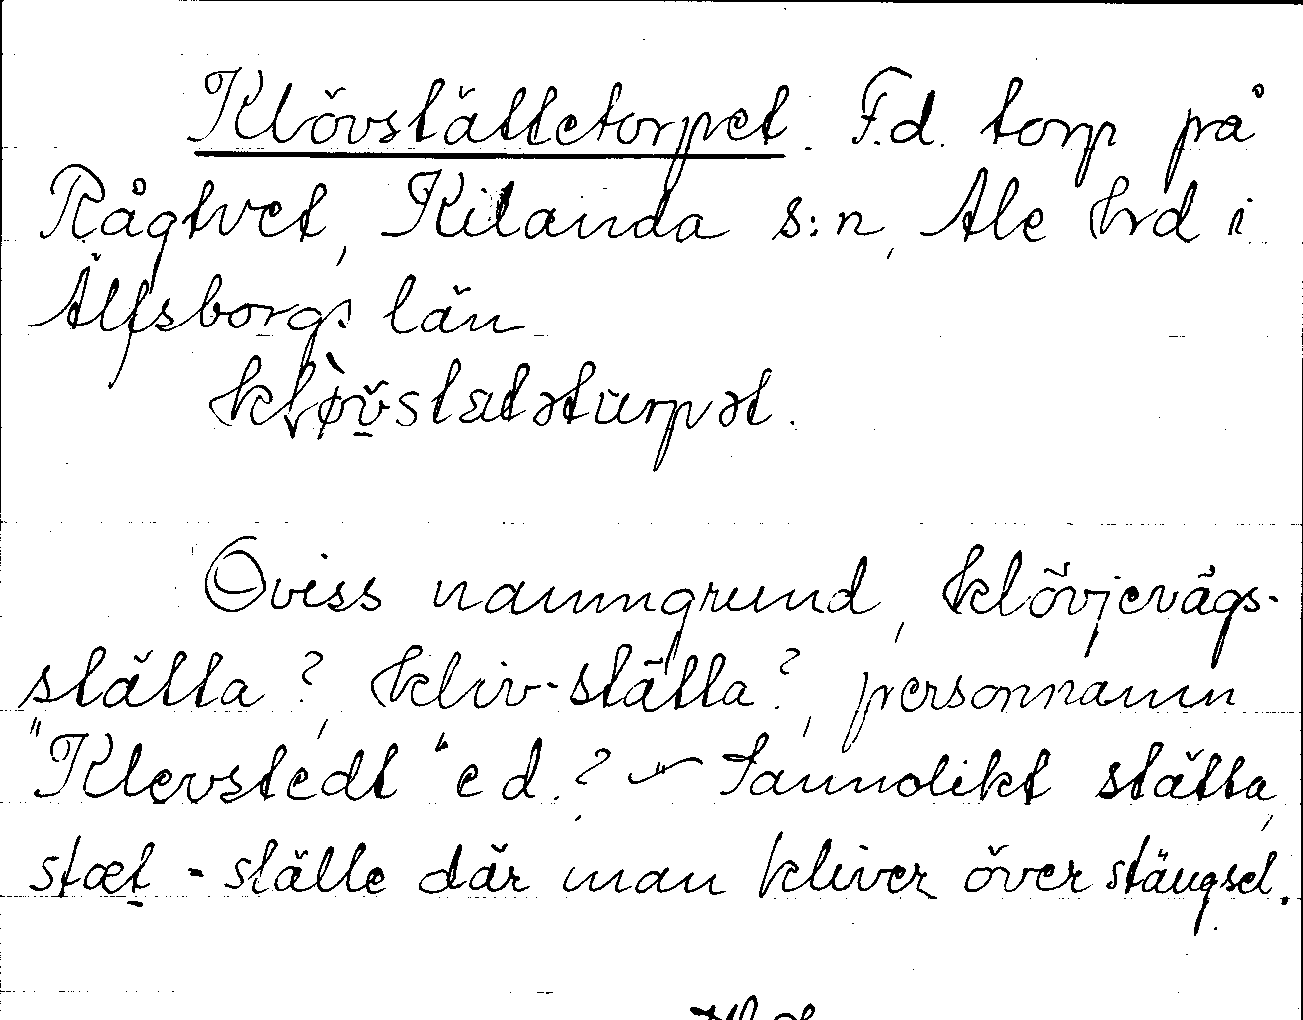 Klövstättetorpet. F.d. torp på
Rågtvet, Kilanda s:n, Ale hrd i
Älfsborgs län
klø̀v̆statətŭrpət.
Oviss namngrund, klövjevägs-
stätta?, kliv-stätta?, personnamn
"Klevstedt" e d.? – Sannolikt stätta,
stæt - ställe där man kliver över stängsel.